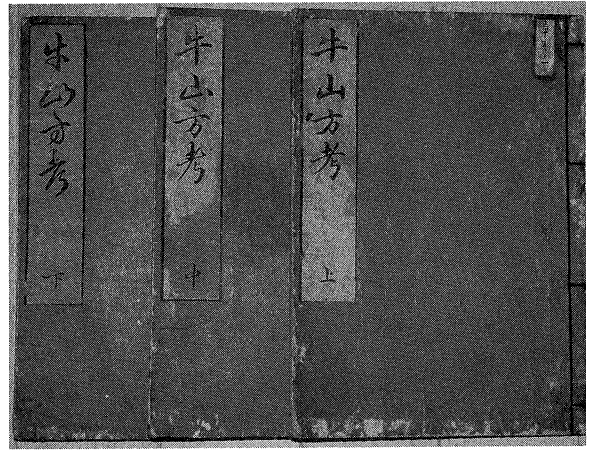 牛山方考
上
牛山方考
中
牛山方考
下